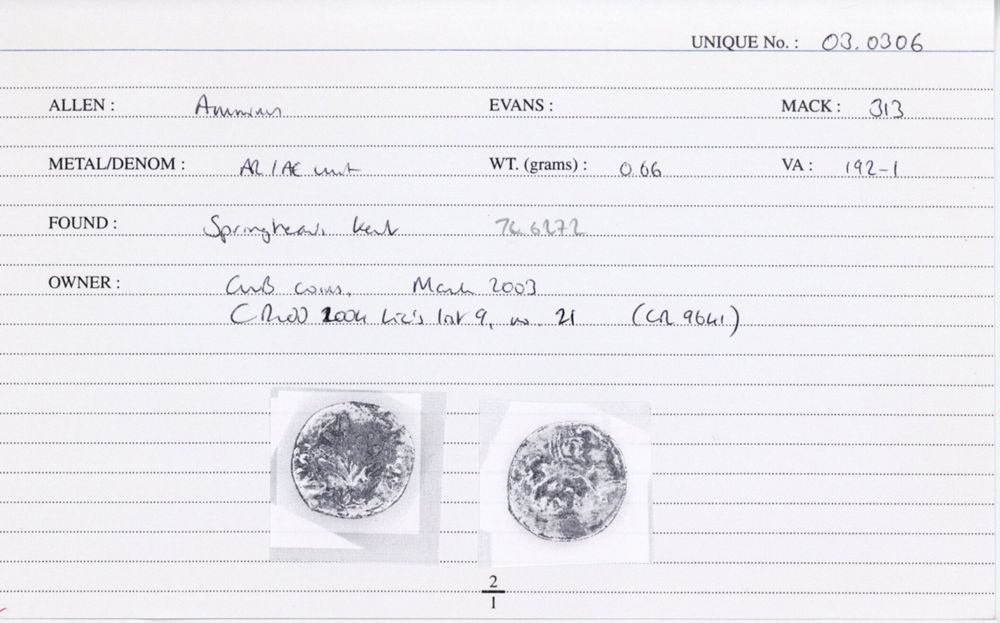 UNIQUE No. : 03.0306
ALLEN : Amminus EVANS : MACK : 313
METAL/DENOM : AR/AE unit WT. (grams) : 0.66 VA : 192-1
FOUND : Springhead, Kent
OWNER : coins. March 2003
2004 Liz's list 9, no. 21 (CR 9641)
2
1